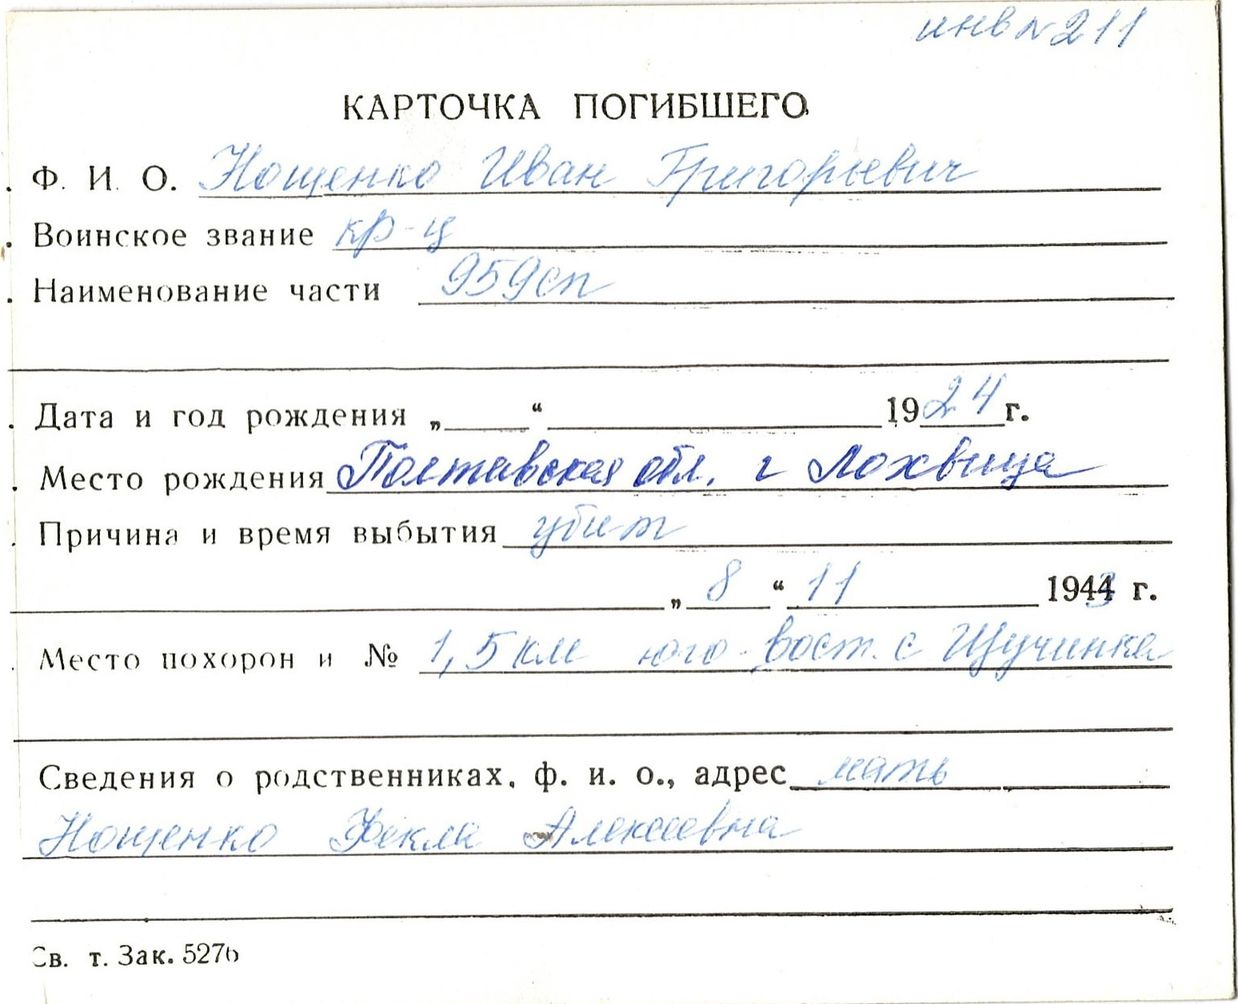 инв № 211
КАРТОЧКА ПОГИБШЕГО
Ф. И. О. Нощенко Иван Григорьевич
Воинское звание кр-ц
Наименование части 959сп
Дата и год рождения „ “ 1924 г.
Место рождения Полтавская обл. г Лохвица
Причина и время выбытия убит
„ 8 “ 11 1943 г.
Место похорон и № 1,5 км юго-вост. с Щучинка
Сведения о родственниках, ф. и. о., адрес мать
Нощенко Фекла Алексеевна
Св. т. Зак. 5276